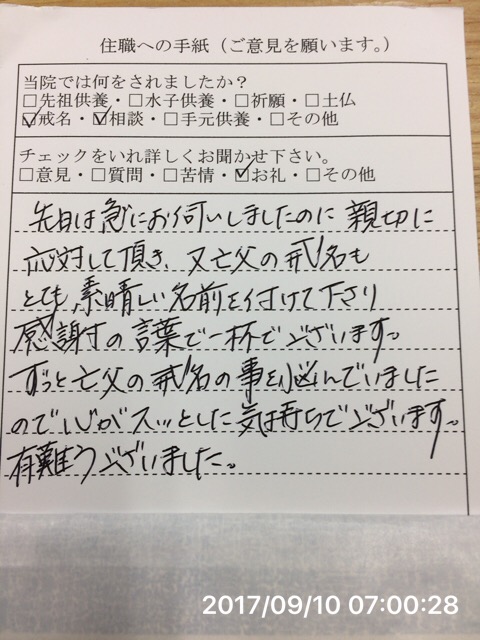 住職への手紙（ご意見を願います。）
当院では何をされましたか？
□先祖供養・□水子供養・□祈願・□土仏
☑戒名・☑相談・□手元供養・□その他
チェックをいれ詳しくお聞かせ下さい。
□意見・□質問・□苦情・☑お礼・□その他
先日は急にお伺いしましたのに 親切に
応対して頂き、又亡父の戒名も
とても素晴しい名前を付けて下さり
感謝の言葉で一杯でございます。
ずっと亡父の戒名の事を悩んでいました
ので心がスッとした気持ちでございます。
有難うございました。
2017/09/10 07:00:28